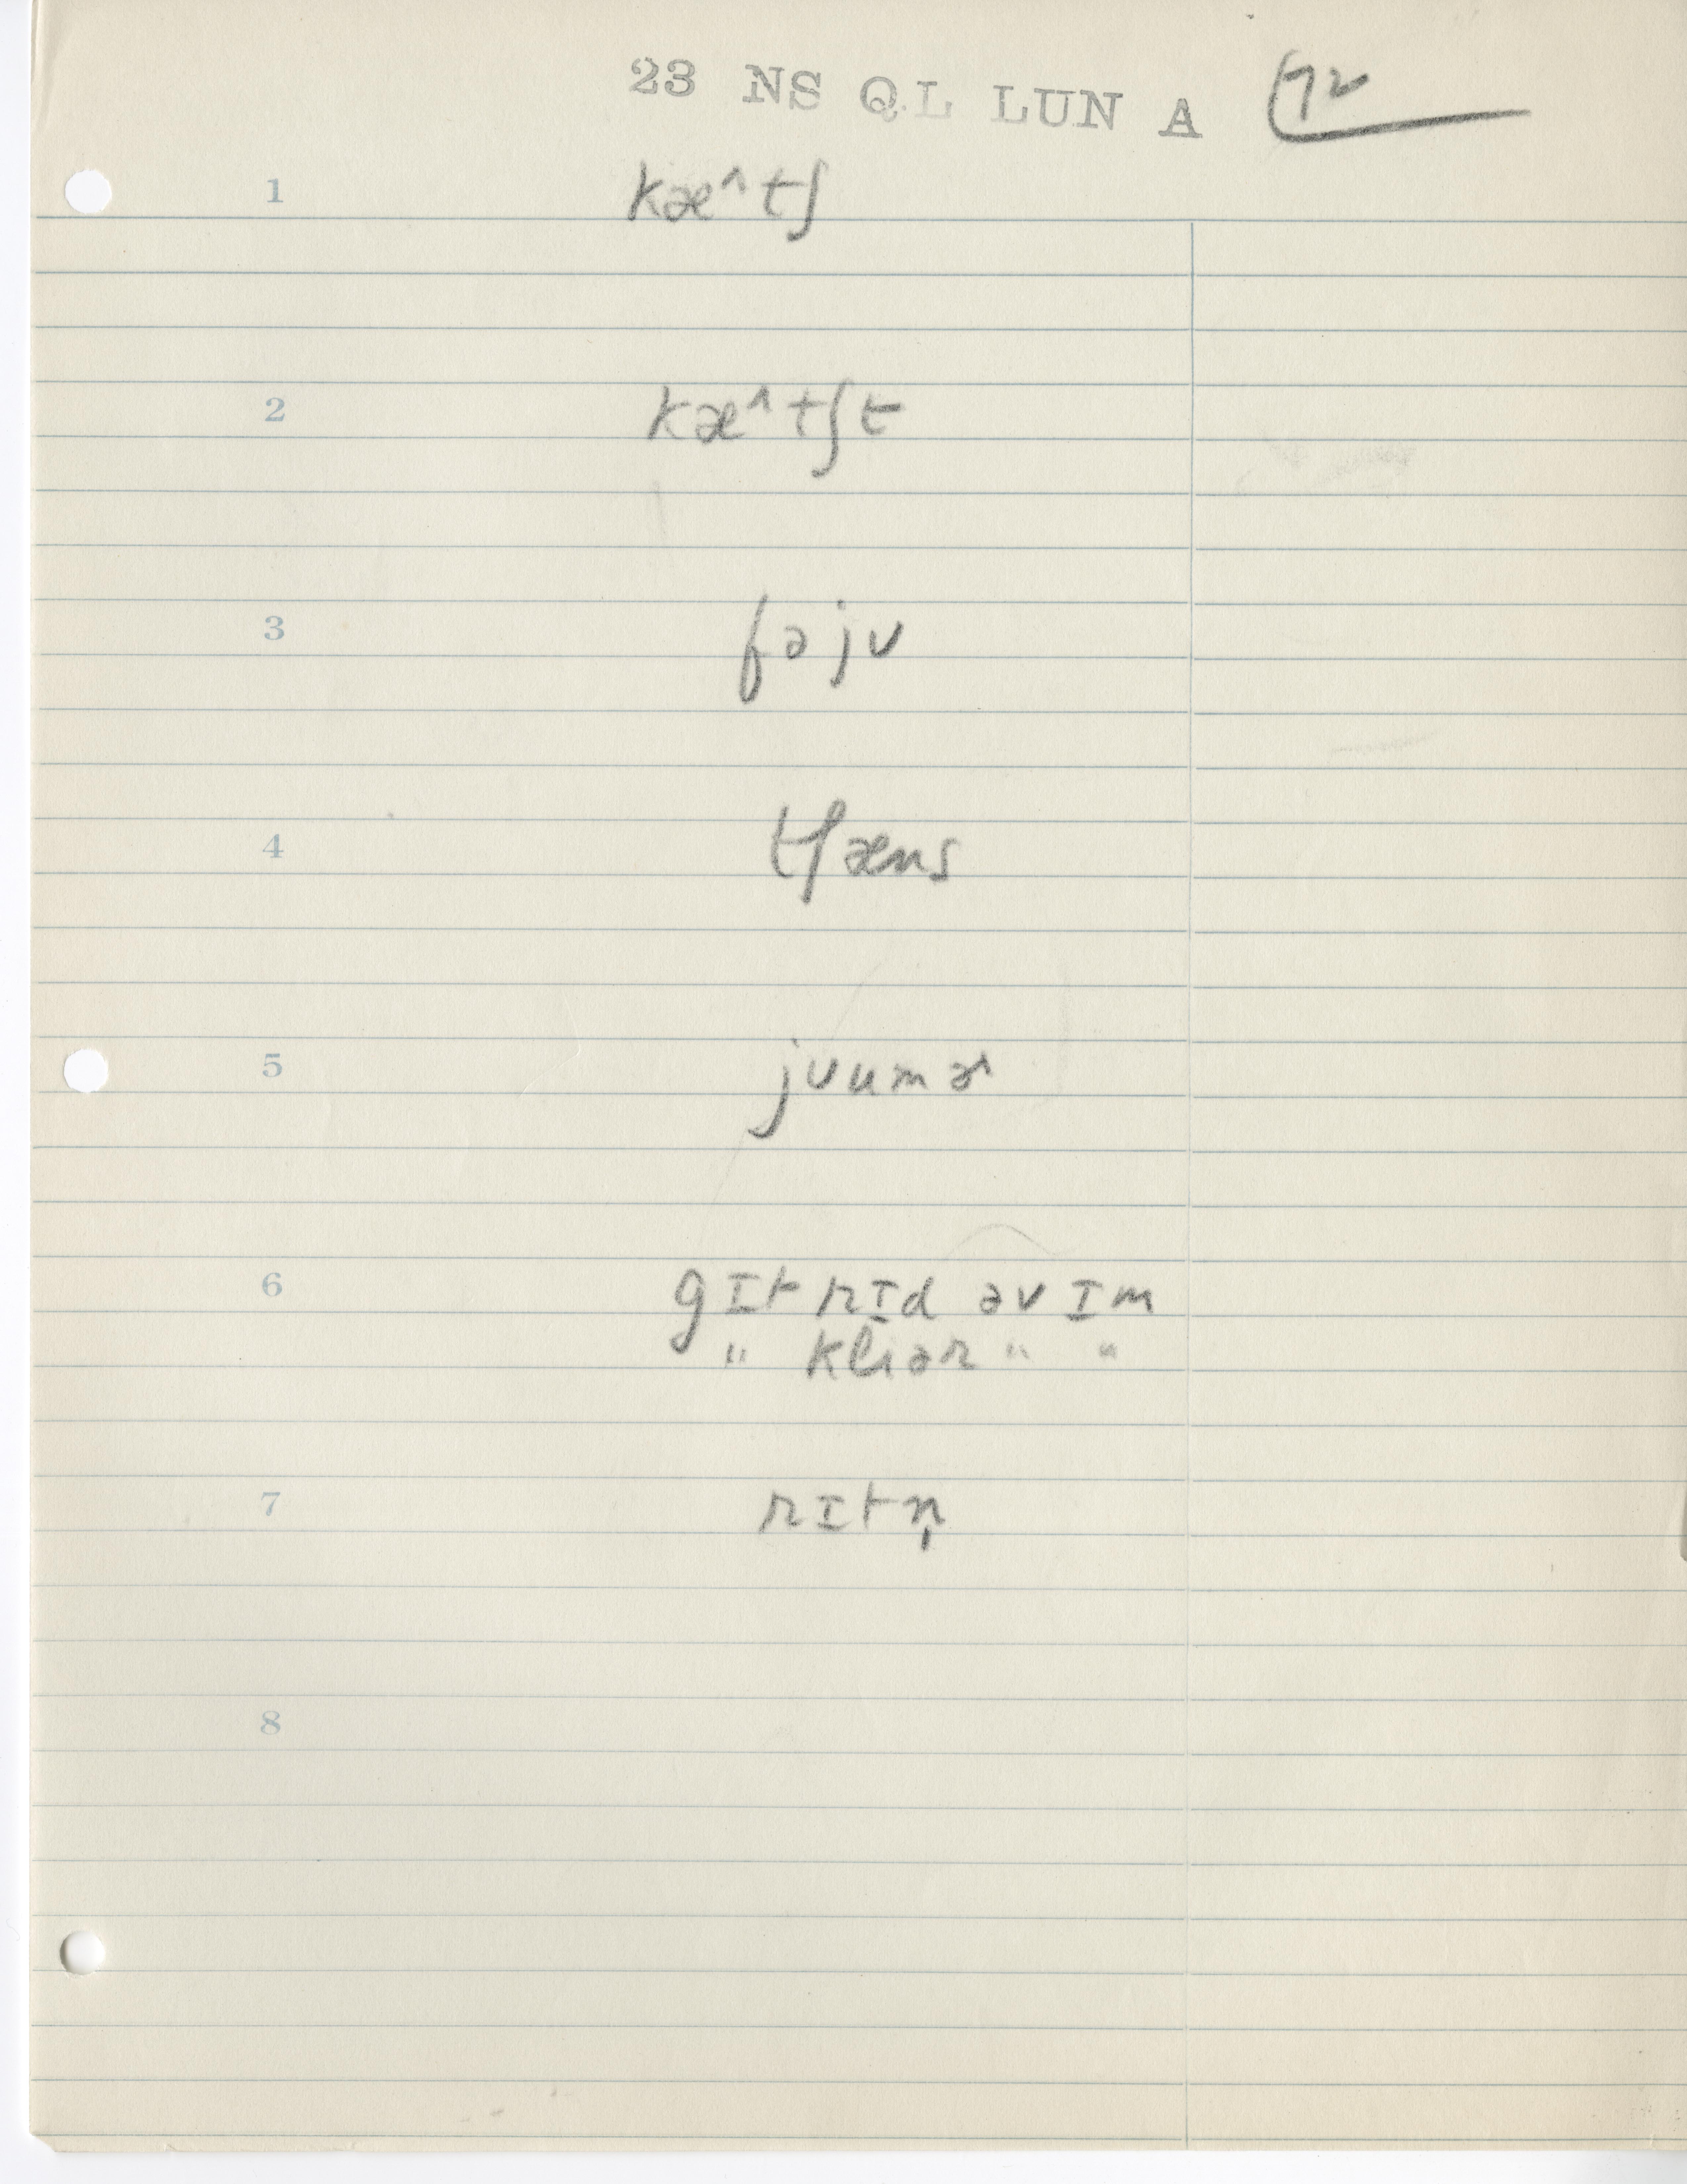 23 NS QL LUN A 72
1 kæ^tʃ
2 kæ^tʃt
3 fəjʊ
4 tʃæns
5 jʊumɚ
6 gɪt rɪd əv ɪm
" kliər " "
7 rɪtn̩
8